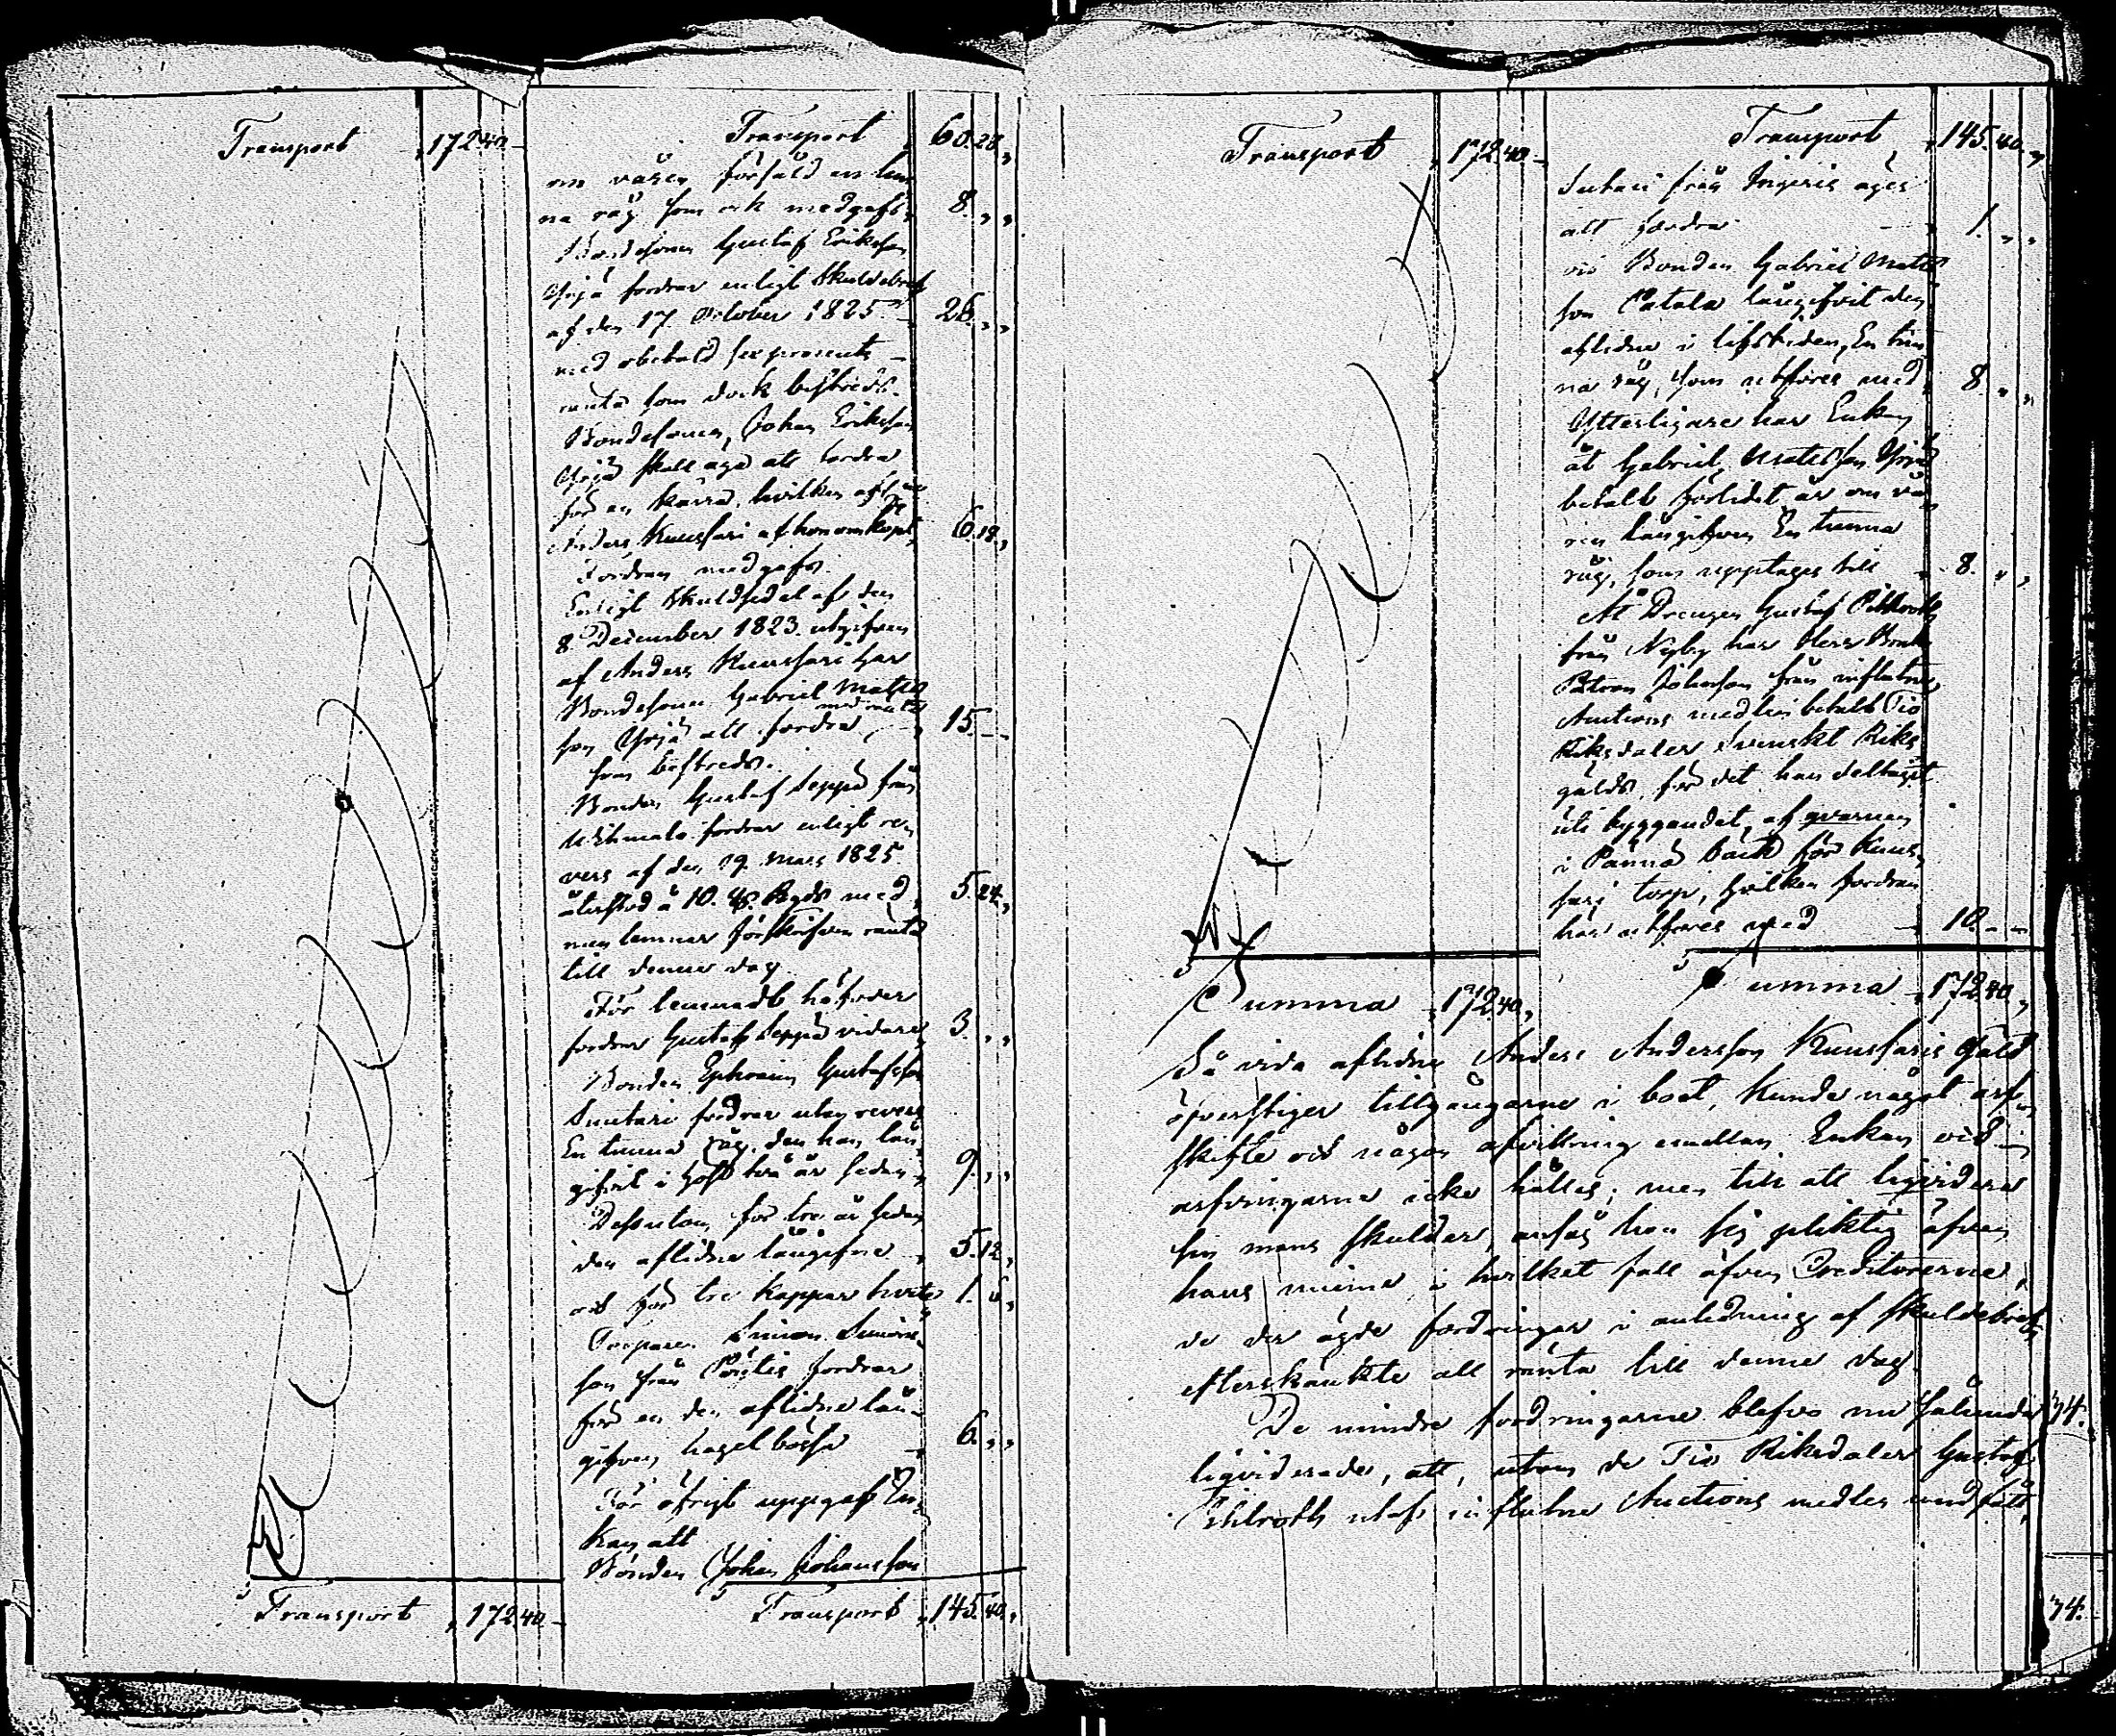 Transport 172.40.
Transport 60.28.
om våren försåld en tun
na råg som ock medgafs, 8. „ „
Bondesonen Gustaf Eriksson
Yrjä fordrar enligt Skuldebref
af den 17. October 1825 26. „ „
med obetald sex procents
ranta som dock bestreds.
Bondesonen, Johan Eriksson
Yrjä skall äga att fordra
för en kärra, hvilken
Anders Kuusfari af honom köpt, 6.18.
Fordran medgafs.
Enligt Skuldsedel af den
8 December 1823. utgifven
af Anders Kuusfari har
Bondesonen Gabriel Mats
son Yrjä att fordra med ranta 15. — —
som bestreds.
Bonden Gustaf Seppä från
fordrar enligt re
vers af den 19. Mars 1825
återstod à 10. Rgds med, 5.24.
men lemnar förskrifven ranta
till denne dag
För lemnadt
fordrar Gustaf Seppä vidare, 3. „ „
Bonden Ephraim Gustafsson
Suutari fordrar utan revers
En tunna råg, den han lån
gifvit i höst två år sedan 9. „ „
Dessutom för tre år sedan
den aflidne långifne 5.12.
och för tre kappar hvete 1. 6.
Torparen Simon Simons
son från fordrar
för en den aflidne lån
gifven hagelbössa 6. „ „
För öfrigt uppgaf En
kan att
Bonden Johan Johansson
Transport 172.40
Transport 145.40.
Transport 172.40
Transport 145.40.
Suutari från äger
att fordra 1. „ „
och Bonden Gabriel Mats
son Patala långifvit den
aflidne i lifstiden, En tun
na råg, som utföres med 8 „ „
Ytterligare har Enkan
åt Gabriel Matsson Yrjä
betalt förlidet år om vå
ren långifven En tunna
råg, som upptages till 8. „ „
At Drengen Gustaf Pihlroth
från Nyby har Herr Bruks
Patron Johnson från influtne
Auctions medlen betalt Tio
Riksdaler Svenskt Riks
gälds, för det han deltagit
uti byggandet, af qvarnen
i Pännä back för Kuus
fari torp, hvilken fordran
här utföres med 10. — —
Summa 172.40.
Summa 172.40.
Så vida aflidne Anders Andersson Kuusfaris Gäld
öfverstiger tillgångarne i boet, kunde något arf
skifte och någon afvittring emellan Enkan och
arfvingarne icke hållas; men till att liqvidera
sin mans skulder, ansåg hon sig pliktig äfven
hans minne, i hvilket fall äfven Creditorerne,
de der ägde fordringar i anledning af skuldebref
efterskänkte all ränta till denne dag.
De mindre fordringarne blefvo nu sålunda
liqviderade, att, utom de Tio Riksdaler Gustaf
Pihlroth utaf influtne Auctions medlen undfått,
34.
34.